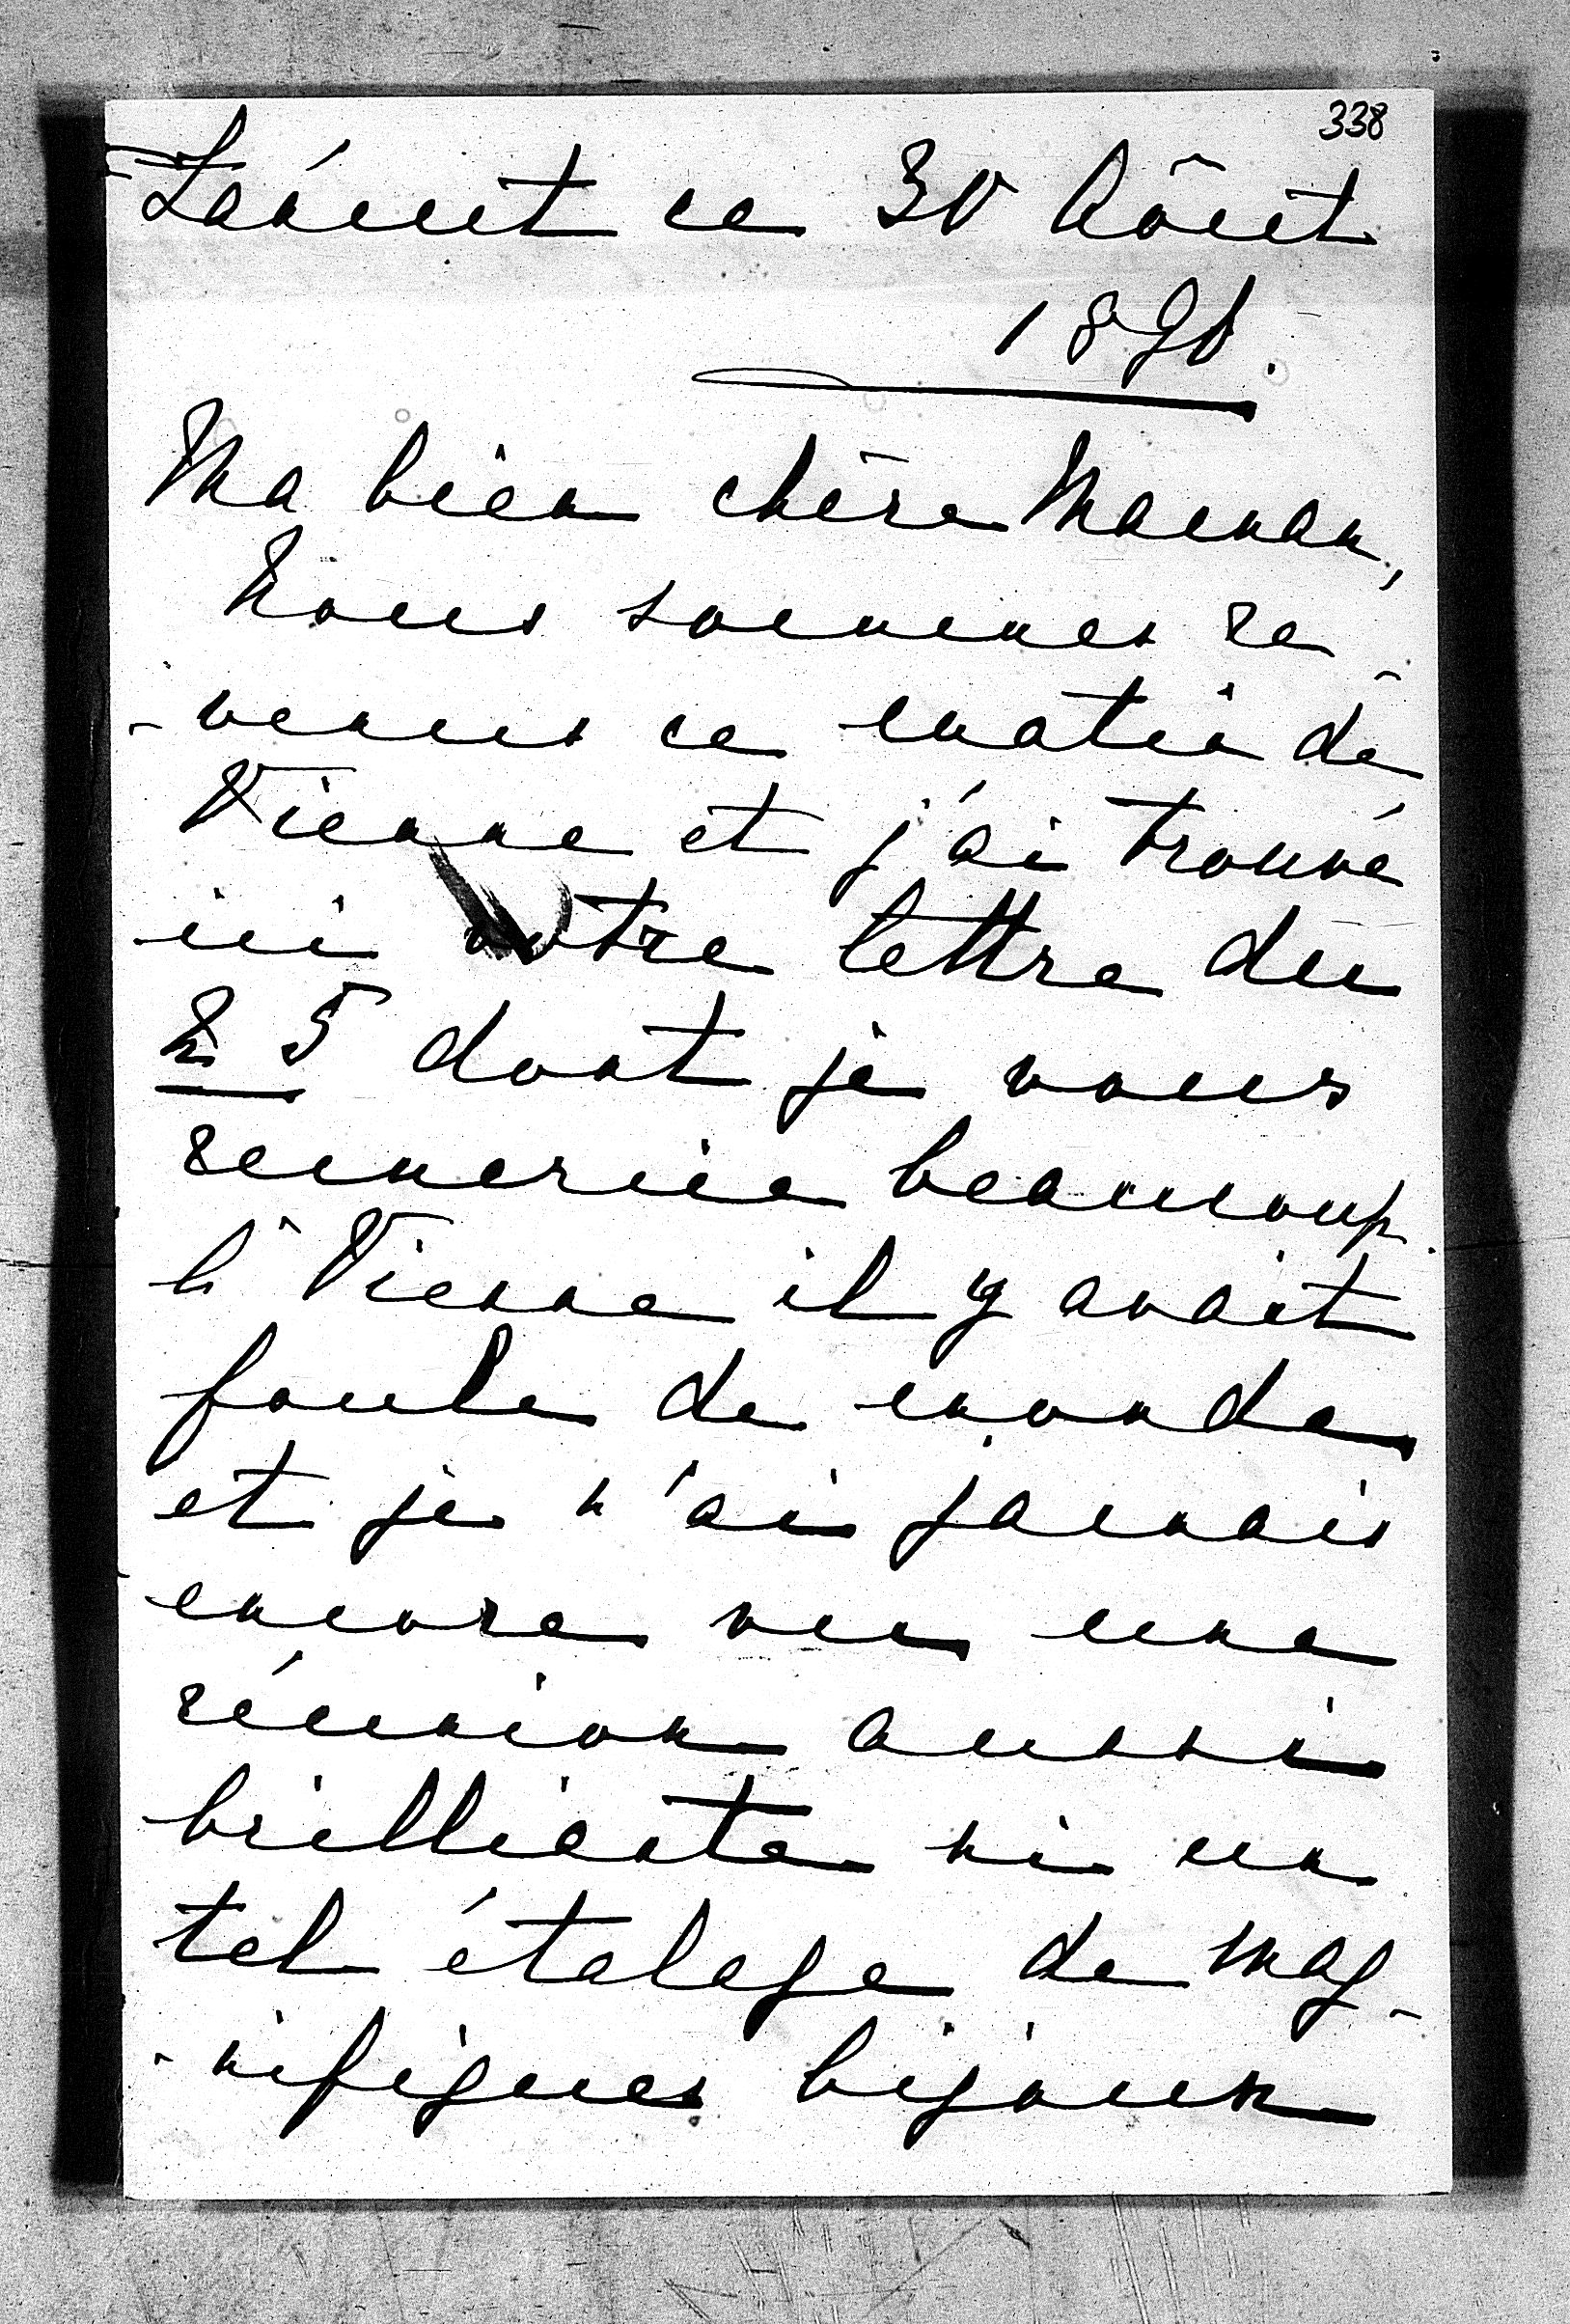 338
Łańcut ce 30 Août
1896.
Ma bien chère Maman,
Nous sommes re-
-venus ce matin de
Vienne et j'ai trouvé
ici votre lettre du
25 dont je vous
remercie beaucoup.
A Vienne il y avait
foule de monde
et je n'ai jamais
encore vu une
réunion aussi
brilliante ni un
tel étalage de mag-
-nifiques bijoux